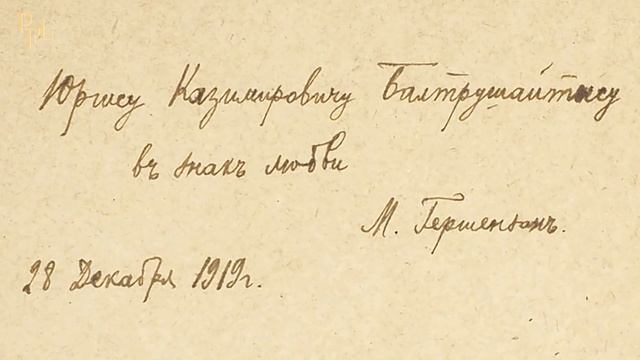 Юргису Казимировичу Балтрушайтису
въ знакъ любви
М. Гершензонъ.
28 Декабря 1919г.